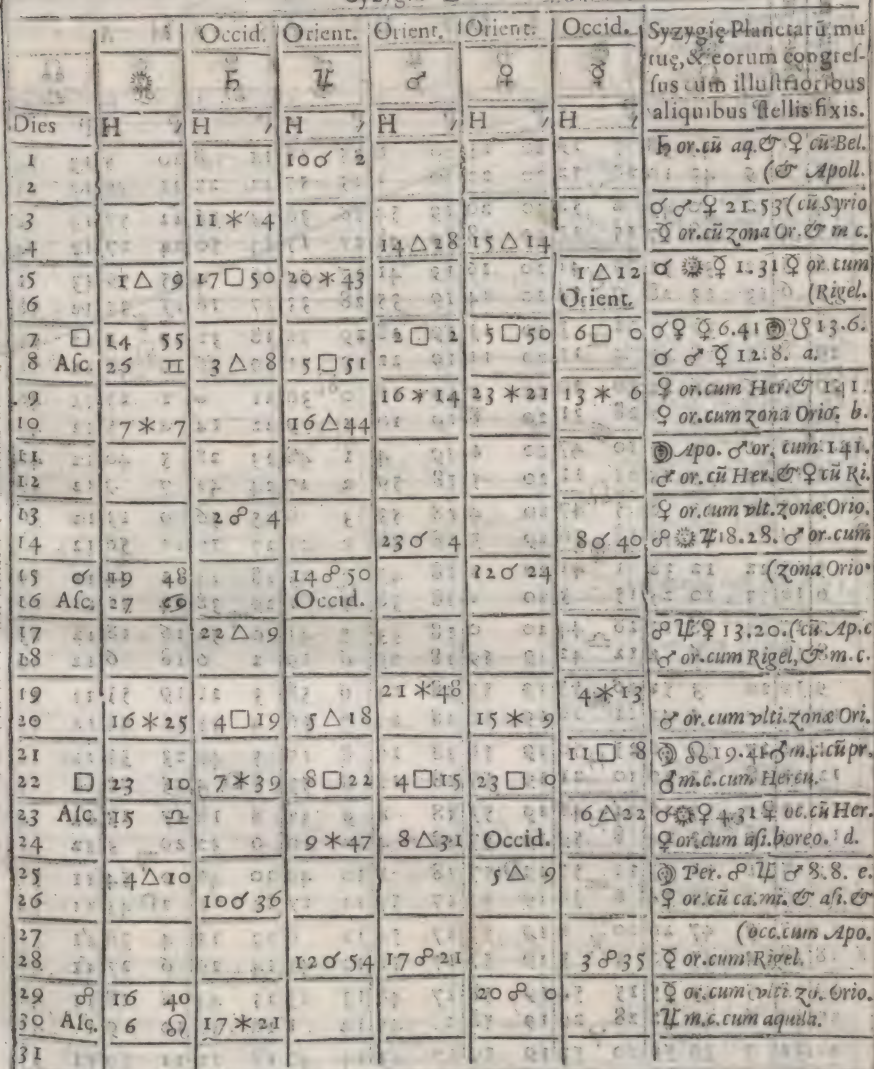 Occid. Orient. Orient. Orient. Occid. Syzygię Planetarū mu
tuę, & eorum congreſ-
ſus cum illuſtrioribus
aliquibus ſtellis fixis.
☉ ♄ ♃ ♂ ♀ ☿
Dies H ′ H ′ H ′ H ′ H ′ H ′
1 10☌ 2 ♄ or.cū aq.& ♀ cū Bel.
2 (& Apoll.
3 11✶ 4 ☌ ♂ ♀ 21.53 (cū Syrio
4 14△28 15△14 ☿ or.cū zona Or.& m c.
5 1△ 9 17□50 20✶43 1△12 ☌ ☉ ♀ 1.31 ♀ or.cum
6 Orient. (Rigel.
7 □ 14 55 2□ 2 5□50 6□ 0 ☌♀ ☿ 6.41 ☽ ☋ 13.6.
8 Aſc. 26 ♊ 3△ 8 5□51 ☌ ♂ ☿ 12.8. a.
9 16✶14 23✶21 13✶ 6 ♀ or.cum Her.& 141.
10 7✶ 7 16△44 ♀ or.cum zona Orio. b.
11 ☽ Apo. ♂ or. cum 141.
12 ♂ or.cū Her.& ♀ cū Ri.
13 2☍ 4 ♀ or.cum vlt.zonæ Orio.
14 23☌ 4 8☌40 ☍ ☉ ♃ 18.28. ♂ or.cum
15 ☌ 19 48 14☍50 12☌24 (zona Orio.
16 Aſc. 27 ♋ Occid.
17 22△ 9 ☍ ♃ ♀ 13.20. (cū Ap.c
18 ♂ or.cum Rigel, & m.c.
19 21✶48 4✶13
20 16✶25 4□19 5△18 15✶ 9 ♂ or.cum vlti.zonæ Ori.
21 11□ 8 ☽ ☊ 19.4 m.c.cū pr.
22 □ 23 10 7✶39 8□22 4□15 23□ 0 ♂ m.c.cum Hercu.
23 Aſc. 15 ♎ 6△22 ☌ ☉ ♀ 4.31 ♀ oc.cū Her.
24 9✶47 8△31 Occid. ♀ or.cum aſi.boreo. d.
25 4△10 5△ 9 ☽ Per. ☍ ♃ ♂ 8.8. e.
26 10☌36 ♀ or.cū ca.mi.& aſi.&
27 (occ.cum Apo.
28 12☌54 17☍21 3☍35 ☿ or.cum Rigel.
29 ☍ 16 40 20☍ 0 ☿ or.cum vlti.zo. Orio.
30 Aſc. 6 ♌ 17✶21 ♃ m.c.cum aquila.
31